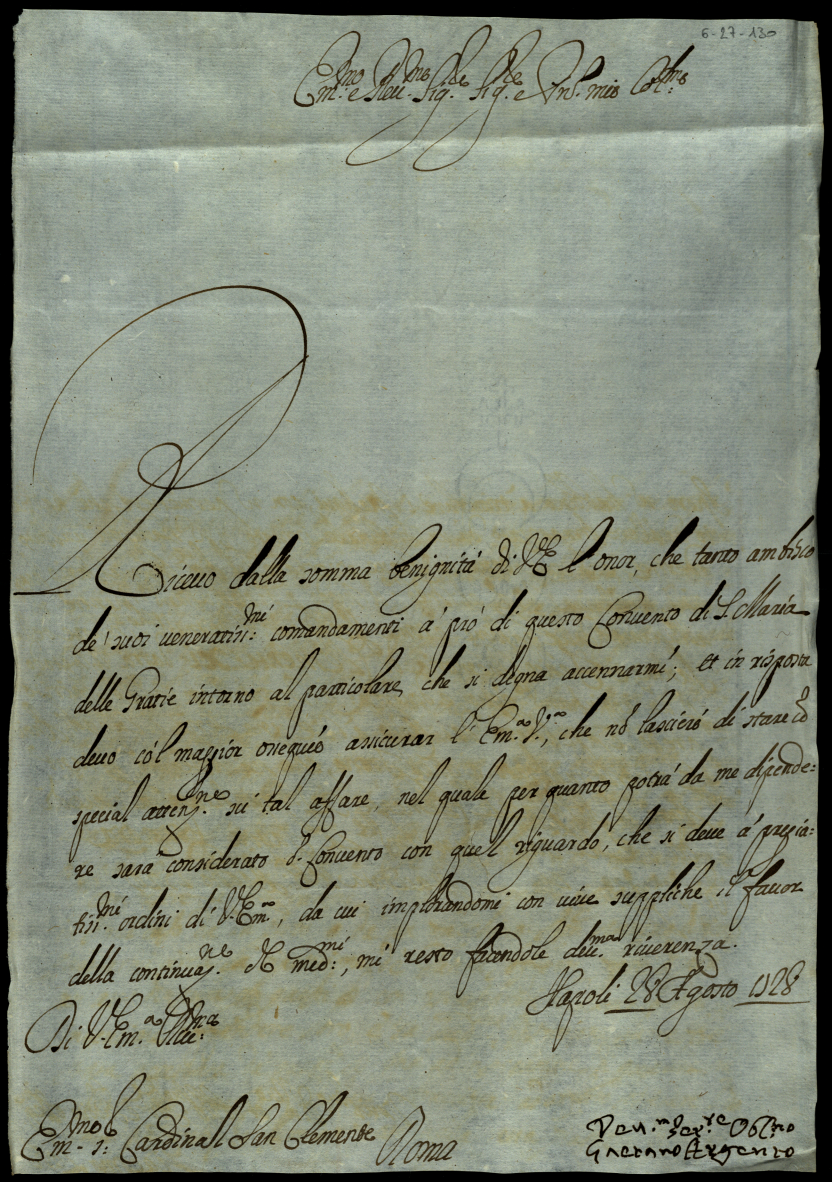 6-27-130
Em.mo e Reu.mo Sig.re Sig.re e Pn̄e mio Col.mo
Riceuo dalla somma benignità di V.E. l'onor, che tanto ambisco
de' suoi ueneratiss:mi comandamenti a' prò di questo Conuento di S. Maria
delle Gratie intorno al particolare, che si degna accennarmi; et in risposta
deuo cól maggior ossequió assicurar l'Em.a V.a, che nō lascieró di stare cō
special attenz.ne sú tal affare, nel quale per quanto potrá da me dipende=
re sara considerato d.o Conuento con quel riguardo, che si deue á pregia=
tiss.mi ordini di V. Em.a, da cui implorandomi con uiue suppliche il fauor
della continuaz.ne de med:mi, mi resto facendole deu.ma riuerenza.
Napoli 28 Agosto 1728
Di V. Em.a Reu:ma
Em.mo S: Cardinal San Clemente Roma
Deu.mo Ser.re Obl.mo
Gaetano Argento